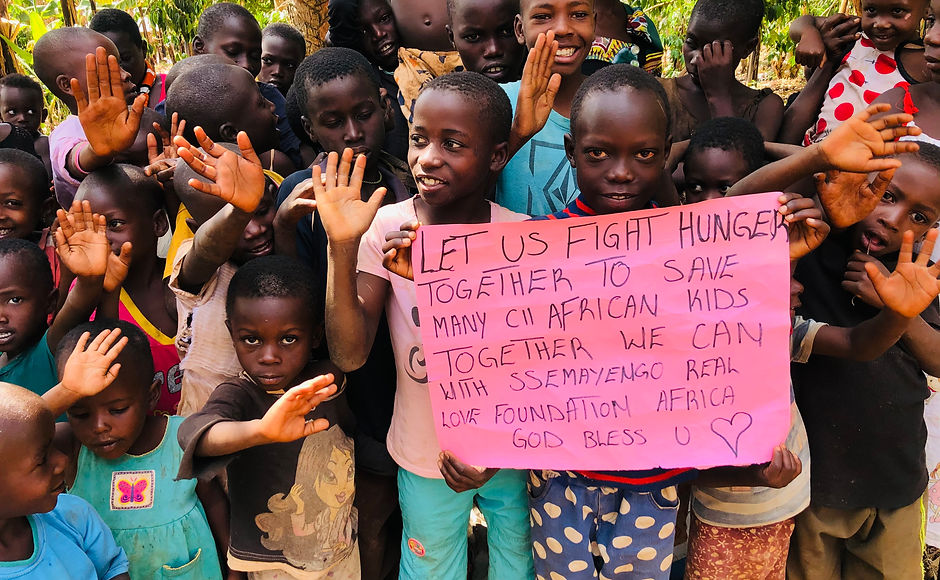 LET US FIGHT HUNGER
TOGETHER TO SAVE
MANY CII AFRICAN KIDS
TOGETHER WE CAN
WITH SSEMAYENGO REAL
LOVE FOUNDATION AFRICA
GOD BLESS U